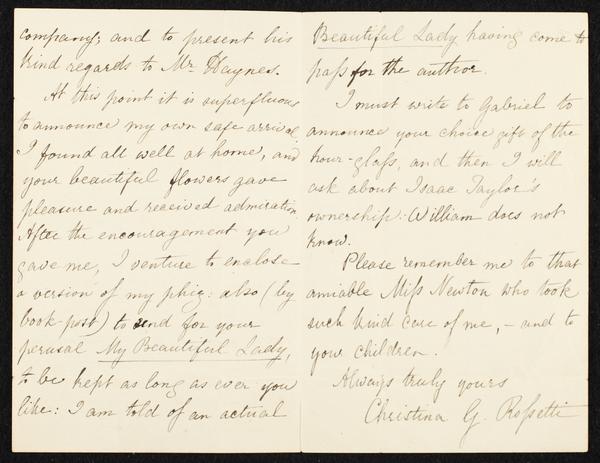 company; and to present his
kind regards to Mr. Haynes.
At this point it is superfluous
to announce my own safe arrival.
I found all well at home, and
your beautiful flowers gave
pleasure and received admiration.
After the encouragement you
gave me, I venture to enclose
a version of my phiz: also (by
book-post) to send for your
perusal My Beautiful Lady,
to be kept as long as ever you
like: I am told of an actual
Beautiful Lady having come to
pass for the author.
I must write to Gabriel to
announce your choice gift of the
hour-glass, and then I will
ask about Isaac Taylor's
ownership: William does not
know.
Please remember me to that
amiable Miss Newton who took
such kind care of me, – and to
your children.
Always truly yours
Christina G. Rossetti